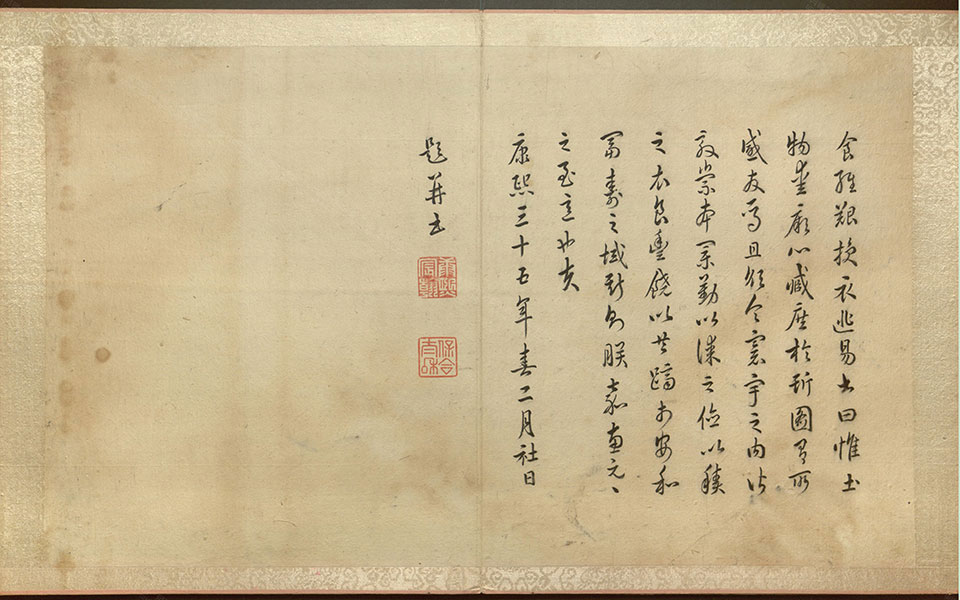 食維艱授衣匪易書曰惟土
物愛厥心臧庶於斯圖有所
感發焉且欲令寰宇之内皆
敦崇本業勤以謀之儉以積
之衣食豐饒以共躋於安和
富壽之域斯則朕嘉惠元〻
之至意也夫
康熙三十五年春二月社日
題并書
康熙宸翰
保合太和